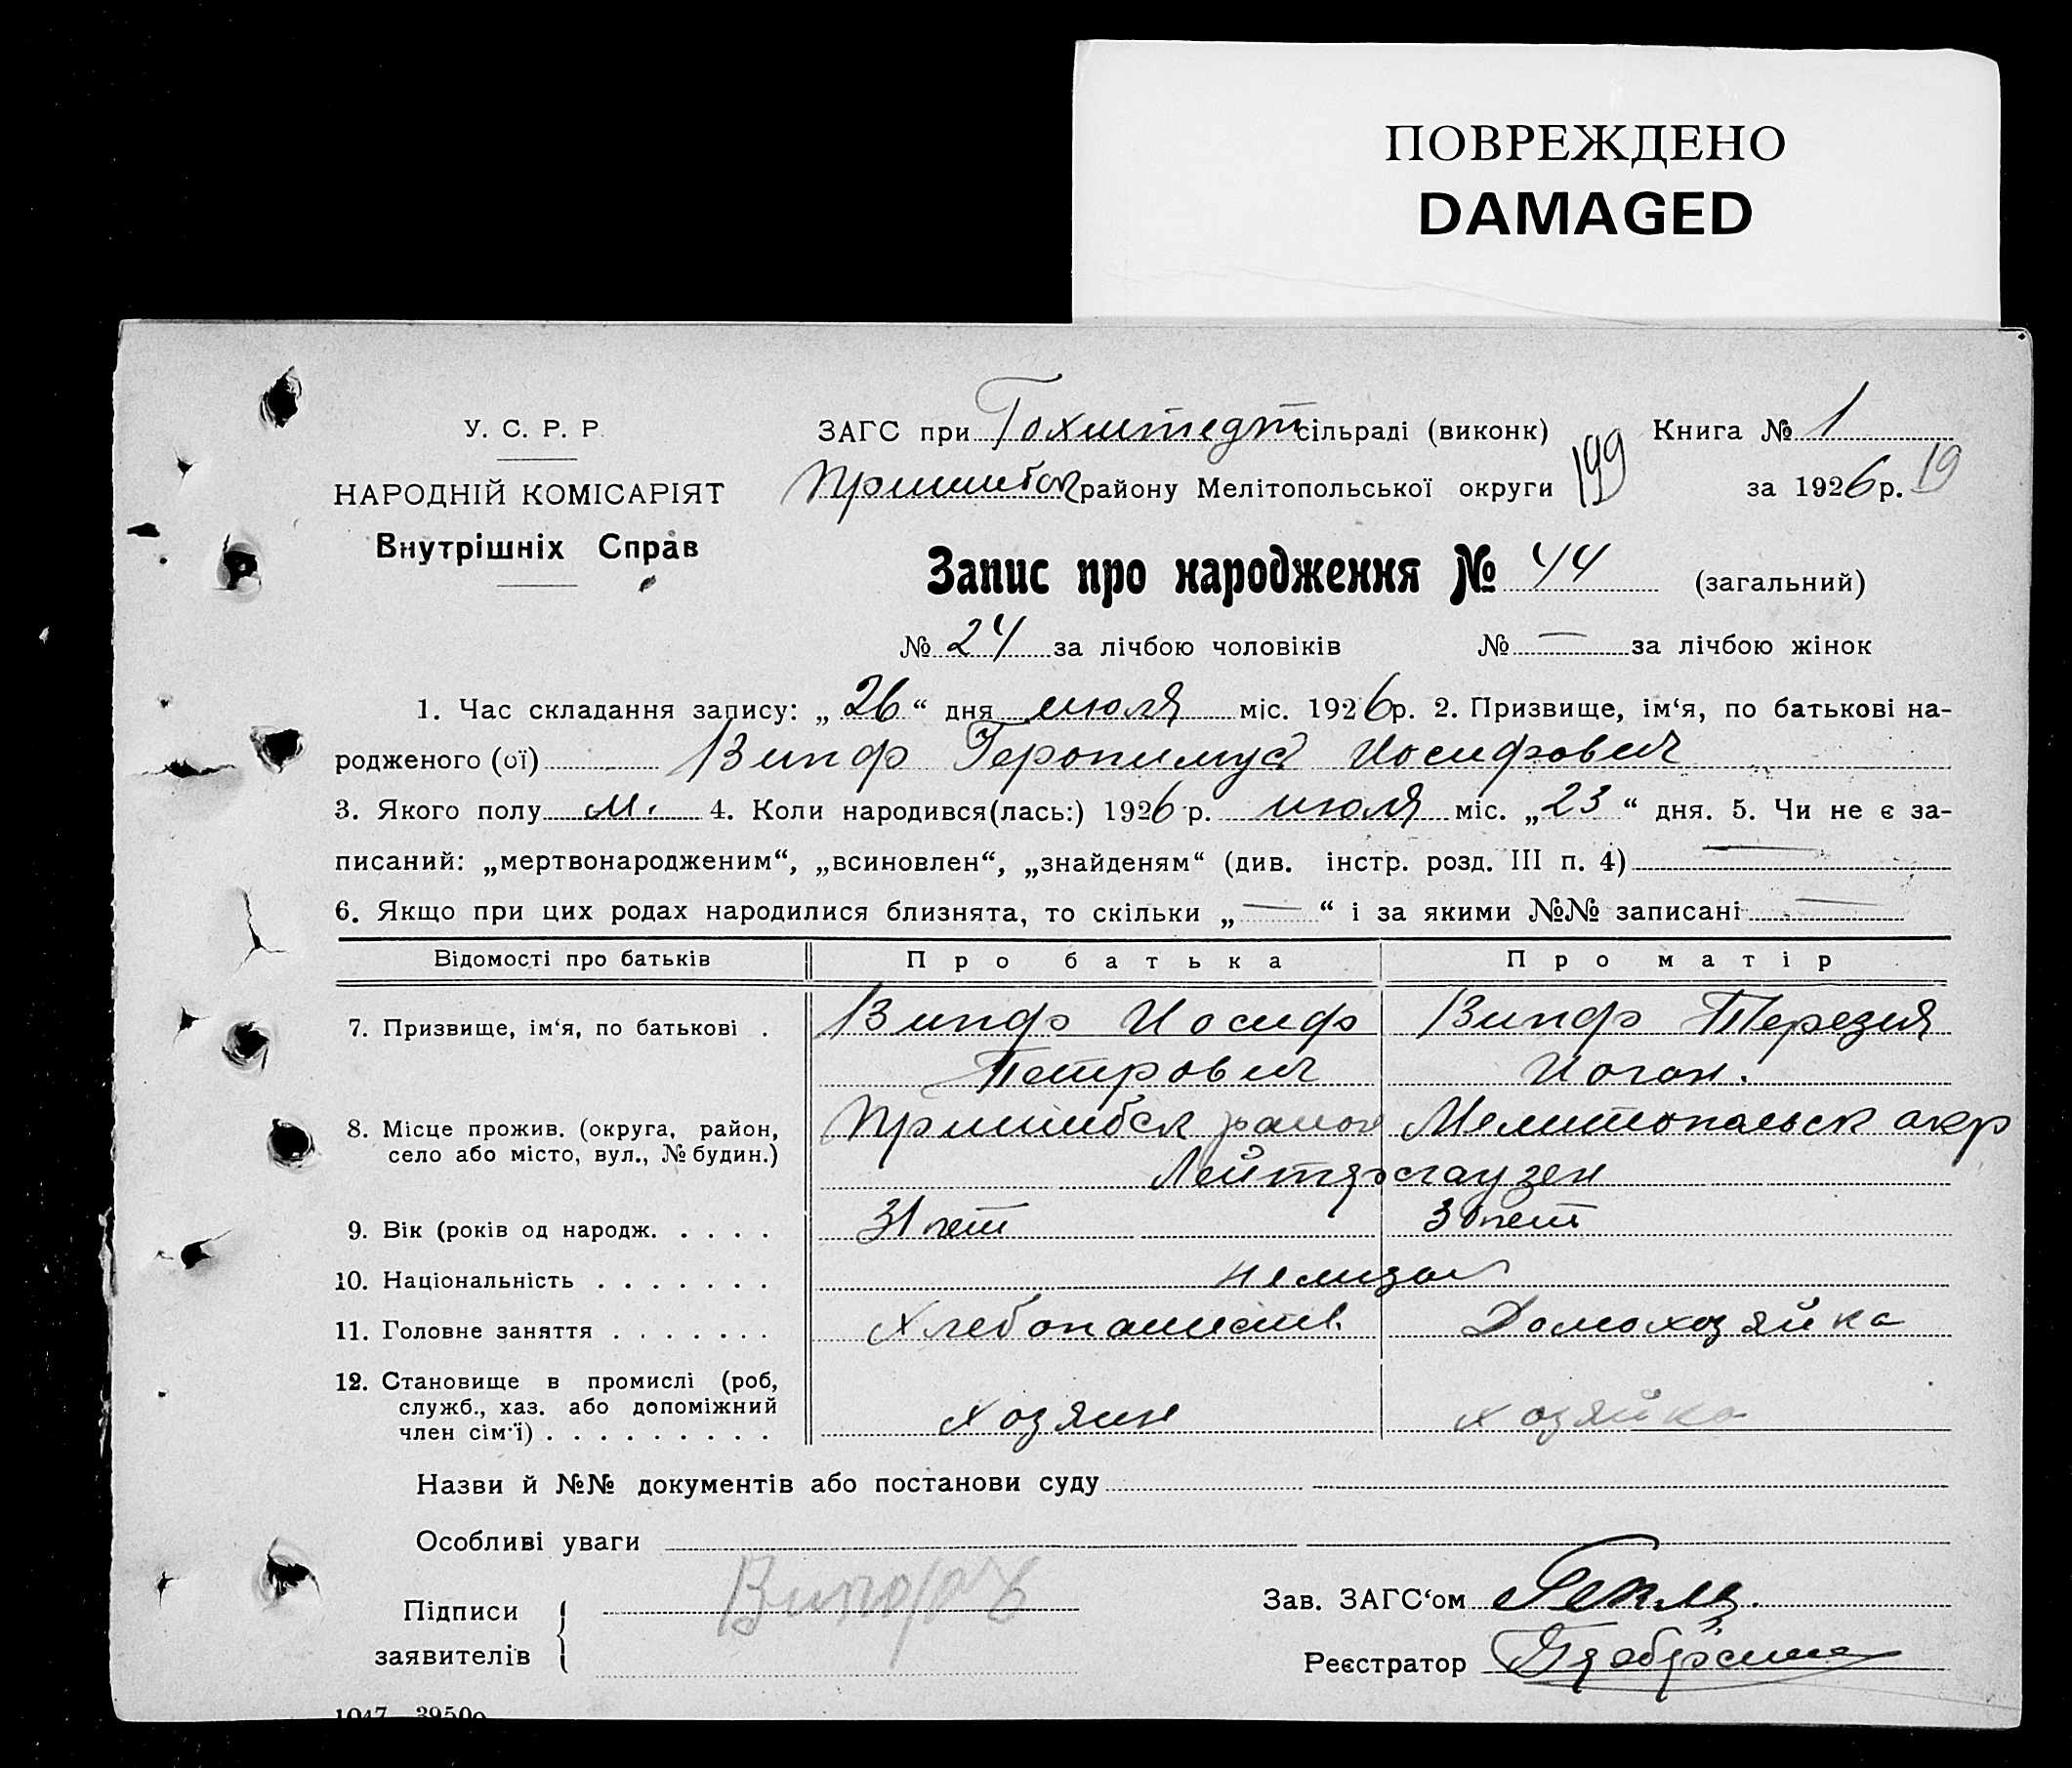 ПОВРЕЖДЕНО
DAMAGED
У. С. Р. Р.
НАРОДНІЙ КОМІСАРІЯТ
Внутрішніх Справ
ЗАГС при Гохштедт сільраді (виконк) Книга № 1
Пришибск району Мелітопольської округи 199 за 1926 р. 19
Запис про народження № 44 (загальний)
№ 24 за лічбою чоловіків № — за лічбою жінок
1. Час складання запису: „26“ дня июля міс. 1926 р. 2. Призвище, ім‘я, по батькові на-
родженого (ої) Випф Геронимус Иосифович
3. Якого полу м. 4. Коли народився(лась:) 1926 р. июля міс. „23“ дня. 5. Чи не є за-
писаний: „мертвонародженим“, „всиновлен“, „знайденям“ (див. інстр. розд. III п. 4) —
6. Якщо при цих родах народилися близнята, то скільки „—“ і за якими №№ записані —
Відомості про батьків Про батька Про матір
7. Призвище, ім‘я, по батькові . Випф Иосиф Випф Терезия
Петрович Иоган.
8. Місце прожив. (округа, район, Пришибск район Мелитопольск окр
село або місто, вул., № будин.) Лейтерсгаузен
9. Вік (років од народж. . . . . 31 лет 30 лет
10. Національність . . . . . . . немцы
11. Головне заняття . . . . . . . Хлебопашеств. Домохозяйка
12. Становище в промислі (роб,
служб., хаз. або допоміжний хозяин хозяйка
член сім‘ї) . . . . . . . . .
Назви й №№ документів або постанови суду
Особливі уваги
Підписи
заявителів
Зав. ЗАГС‘ом
Реєстратор
1047 3950